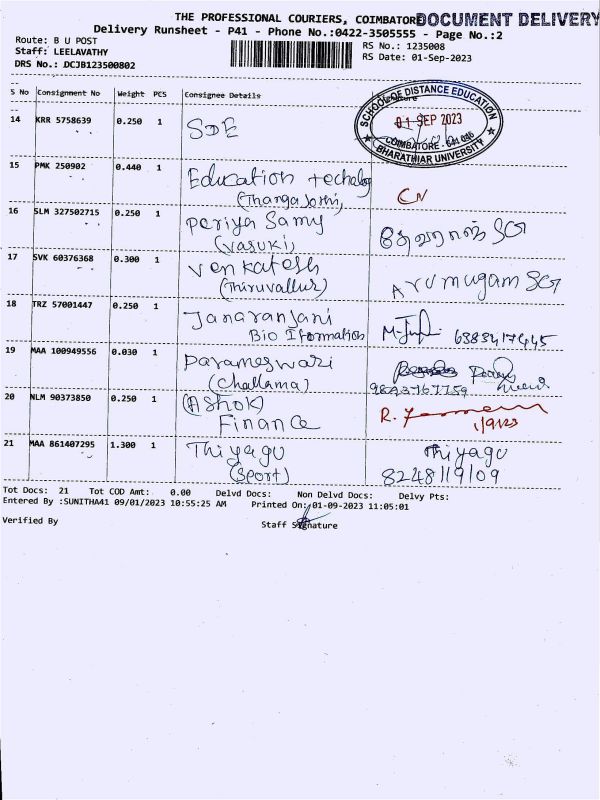 THE PROFESSIONAL COURIERS, COIMBATORE
DOCUMENT DELIVERY
Delivery Runsheet - P41 - Phone No.:0422-3505555 - Page No.:2
Route: B U POST
RS No.: 1235008
Staff: LEELAVATHY
RS Date: 01-Sep-2023
DRS No.: DCJB123500802
S No Consignment No Weight PCS Consignee Details
SCHOOL OF DISTANCE EDUCATION
01 SEP 2023
COIMBATORE - 641 046
BHARATHIAR UNIVERSITY
14 KRR 5758639 0.250 1 SDE
15 PMK 250902 0.440 1 Education techology
(Thangajothi) CN
16 SLM 327502715 0.250 1 Periya Samy
(Vasuki)
17 SVK 60376368 0.300 1 Venkatesh Arumugam SGT
(Thiruvallur)
18 TRZ 57001447 0.250 1 Janaranjani
Bio Iformation 6383417445
19 MAA 100949556 0.030 1 Parameswari
(Challama)
20 NLM 90373850 0.250 1 (Ashok)
Finance 1/9/23
21 MAA 861407295 1.300 1 Thiyagu Thiyagu
(Sport) 8248119109
Tot Docs: 21 Tot COD Amt: 0.00 Delvd Docs: Non Delvd Docs: Delvy Pts:
Entered By :SUNITHA41 09/01/2023 10:55:25 AM Printed On: 01-09-2023 11:05:01
Verified By Staff Signature